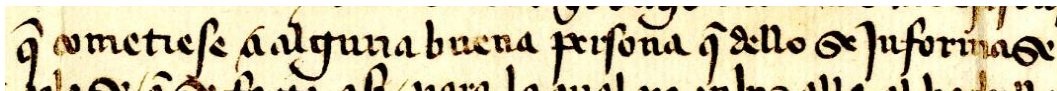 q̃ cometiese a alguna buena persona q̃ dello se Informase